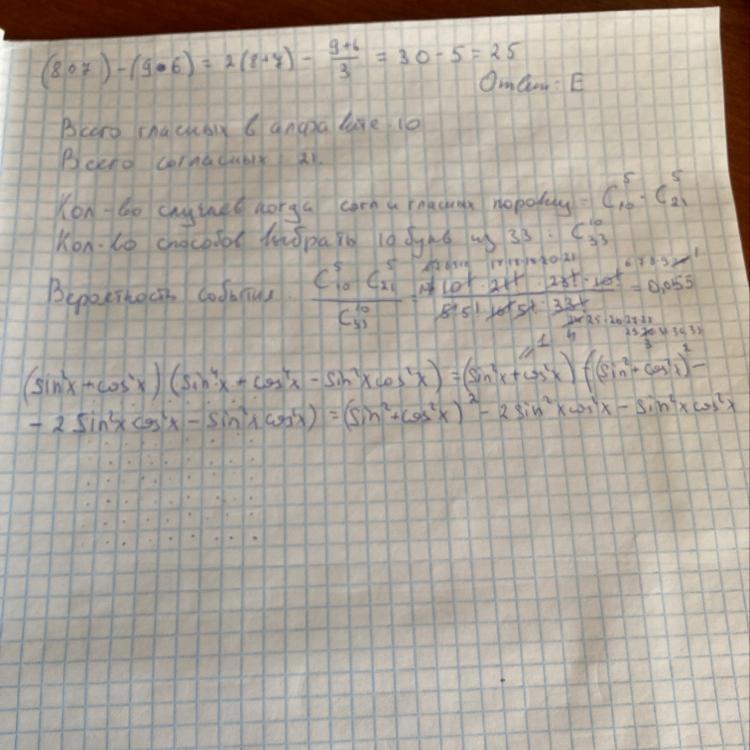 (8∘7) - (9∘6) = 2(8+7) - (9+6)/3 = 30 - 5 = 25
Ответ: E
Всего гласных в алфавите: 10
Всего согласных: 21
Кол-во случаев когда согл и гласных поровну - C₁₀⁵ · C₂₁⁵
Кол-во способов выбрать 10 букв из 33 - C₃₃¹⁰
Вероятность события (C₁₀⁵ · C₂₁⁵)/C₃₃¹⁰ = = 0,055
(sin²x + cos²x)(sin⁴x + cos⁴x - sin²x cos²x) = (sin²x + cos²x) · ((sin² + cos²x)² -
- 2 sin²x cos²x - sin²x cos²x) = (sin² + cos²x)² - 2 sin²x cos²x - sin²x cos²x